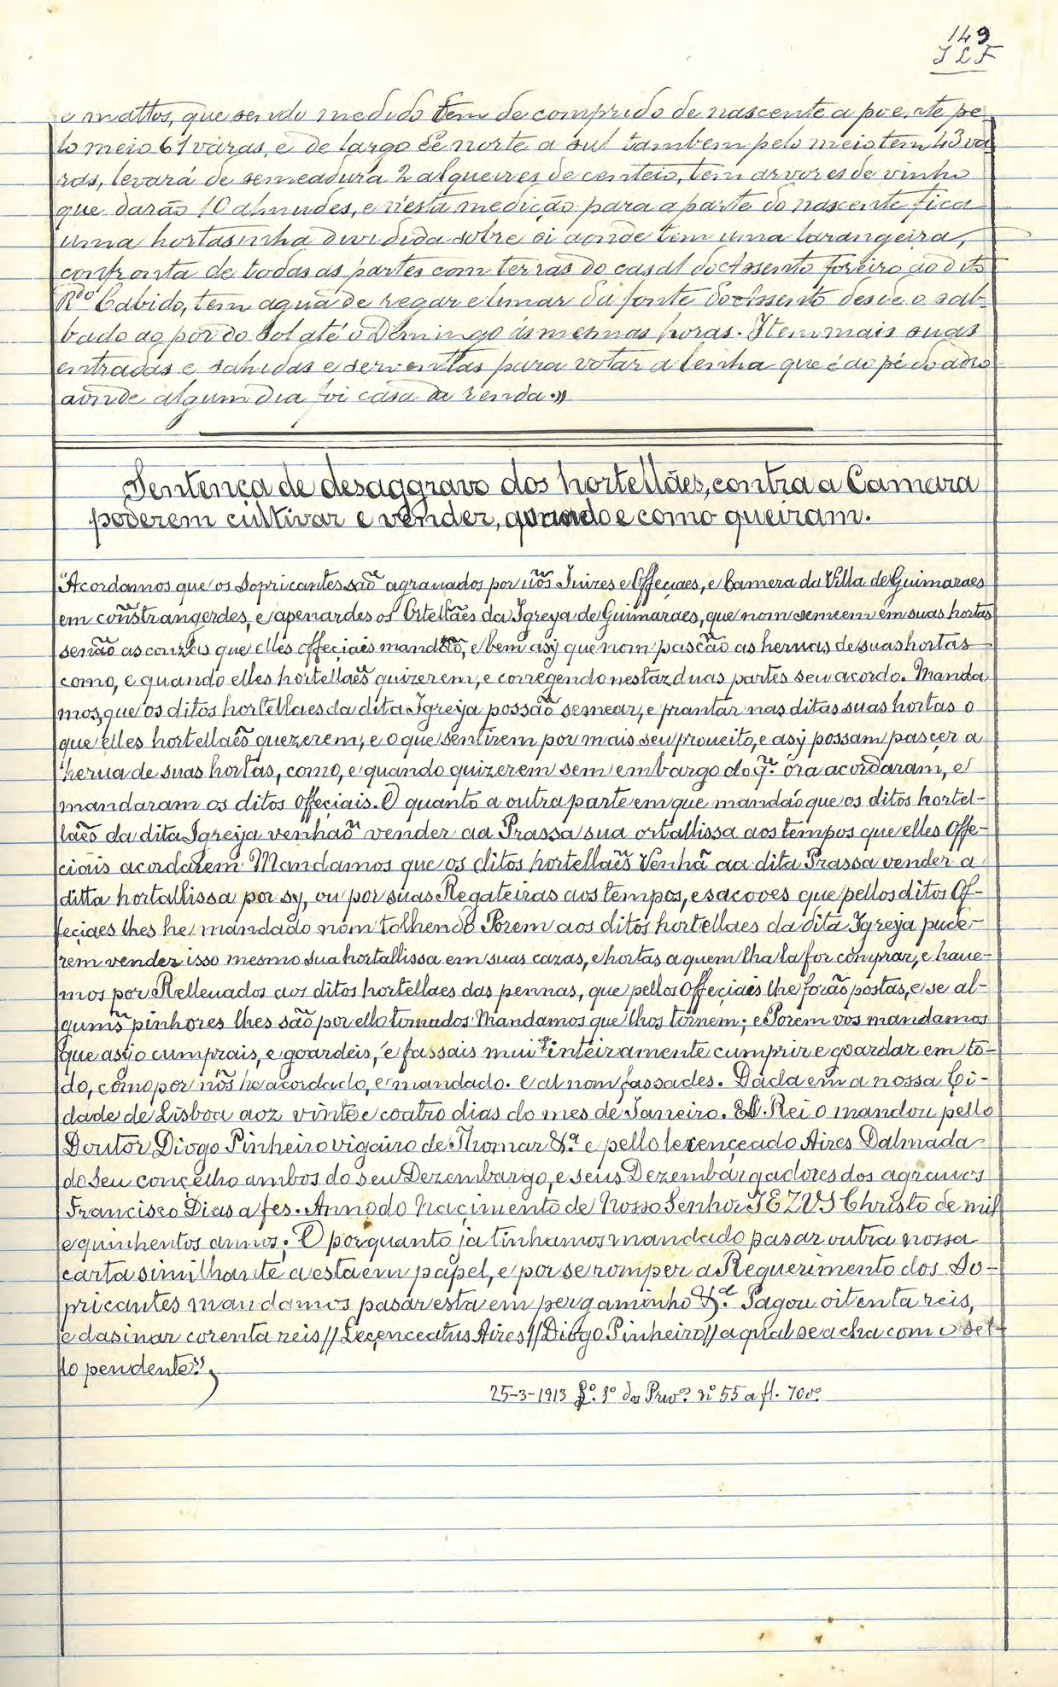 149
J L F
e mattos, que sendo medido tem de comprido de nascente a poente pe-
lo meio 61 varas, e de largo de norte a sul tambem pelo meio tem 43 va-
ras, levará de semeadura 2 alqueires de centeio, tem arvores de vinho
que darão 10 almudes, e nesta medição para a parte do nascente fica
uma hortasinha dividida sobre si aonde tem uma larangeira,
confronta de todas as partes com terras do casal do Assento foreiro ao dito
R.do Cabido, tem agua de regar e limar da fonte do Assento desde o sab-
bado ao pôr do sol até o Domingo ás mesmas horas. Item mais suas
entradas e sahidas e serventias para votar a lenha que é ao pé do adro
aonde algum dia foi casa da renda.»
Sentença de desaggravo dos hortellães, contra a Camara
poderem cultivar e vender, quando e como queiram.
"Acordamos que os Sopricantes são agrauados por uós Juizes e Offeçiaes, e Camera da Villa de Guimaraes
em constrangerdes, e apenardes os Ortellães da Igreya de Guimaraes, que nom semeem em suas hortas
senão as couzas que elles offeçiaes mandão, e bem asy que nom pasção as heruas de suas hortas
como, e quando elles hortellaẽs quizerem, e corregendo nestaz duas partes seu acordo. Manda
mos, que os ditos hortellaes da dita Igreya possão semear, e prantar nas ditas suas hortas o
que elles hortellaẽs quezerem, e o que sentirem por mais seu proueito, e asy possam pasçer a
herua de suas hortas, como, e quando quizerem sem embargo do q. ora acordaram, e
mandaram os ditos offeçiais. O quanto a outra parte em que mandão que os ditos hortel-
laẽs da dita Igreja venhão vender aa Prassa sua ortallissa aos tempos que elles Offe-
ciais acordarem Mandamos que os ditos hortellaẽs Venhã aa dita Prassa vender a
ditta hortallissa por sy, ou por suas Regateiras aos tempos, e sacoves que pellos ditos Of-
feçiaes lhes he mandado nom tolhendo Porem aos ditos hortellaes da dita Igreja pude-
rem vender isso mesmo sua hortallissa em suas cazas, e hortas a quem lha la for comprar, e haue-
mos por Relleuados aos ditos hortellaes das pennas, que pellos Offeçiaes lhe forão postas, e se al-
guns pinhores lhes são por ello tomados Mandamos que lhos tornem; e Porem vos mandamos
que asyo cumprais, e goardeis, e fassais mui inteiramente cumprir e goardar em to-
do, como por nós he acordado, e mandado. e al nom fassades. Dada em a nossa Ci-
dade de Lisboa aoz vinte e coatro dias do mes de Janeiro. El Rei o mandou pello
Doutor Diogo Pinheiro vigairo de Thomar &.a e pello lecençeado Aires Dalmada
do Seu conçelho ambos do seu Dezembargo, e seus Dezembargadores dos agrauos
Francisco Dias a fes. Anno do Nacimento de Nosso Senhor JEZUS Christo de mil
e quinhentos annos. E porquanto ja tinhamos mandado pasar outra nossa
carta similhante a esta em papel, e por se romper a Requerimento dos So-
pricantes mandamos pasar esta em pergaminho &.a Pagou oitenta reis,
e dasinar corenta reis // Leçenceatus Aires // Diogo Pinheiro // a qual se acha com o sel-
lo pendente."
25-3-1913 L.o 1.o dos Priv.os n.o 55 a fl. 70 v.o